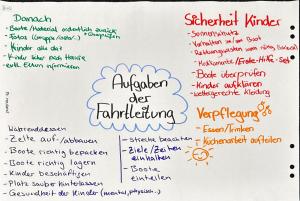 Danach
- Boote/Material ordentlich zurück
- Fotos
- Kinder alle da?
- Kinder
- evtl. Eltern informieren
Sicherheit Kinder
- Sonnenschutz
- Verhalten im/am Boot
- Rettungswesten
- Medikamente/Erste-Hilfe-Set
- Boote überprüfen
- Kinder aufklären
- wettergerechte Kleidung
Aufgaben
der
Fahrtleitung
Verpflegung
- Essen/Trinken
- Küchenarbeit aufteilen
Währenddessen
- Zelte auf-/abbauen
- Boote richtig bepacken
- Boote richtig lagern
- Kinder beschäftigen
- Platz sauber hinterlassen
- Gesundheit der Kinder (mental, physisch..)
- Strecke beachten
- Ziele/Zeiten
einhalten
- Boote
einteilen